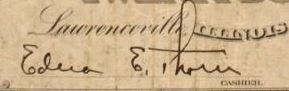 Lawrenceville, ILLINOIS
Edna E. Thorn
CASHIER.